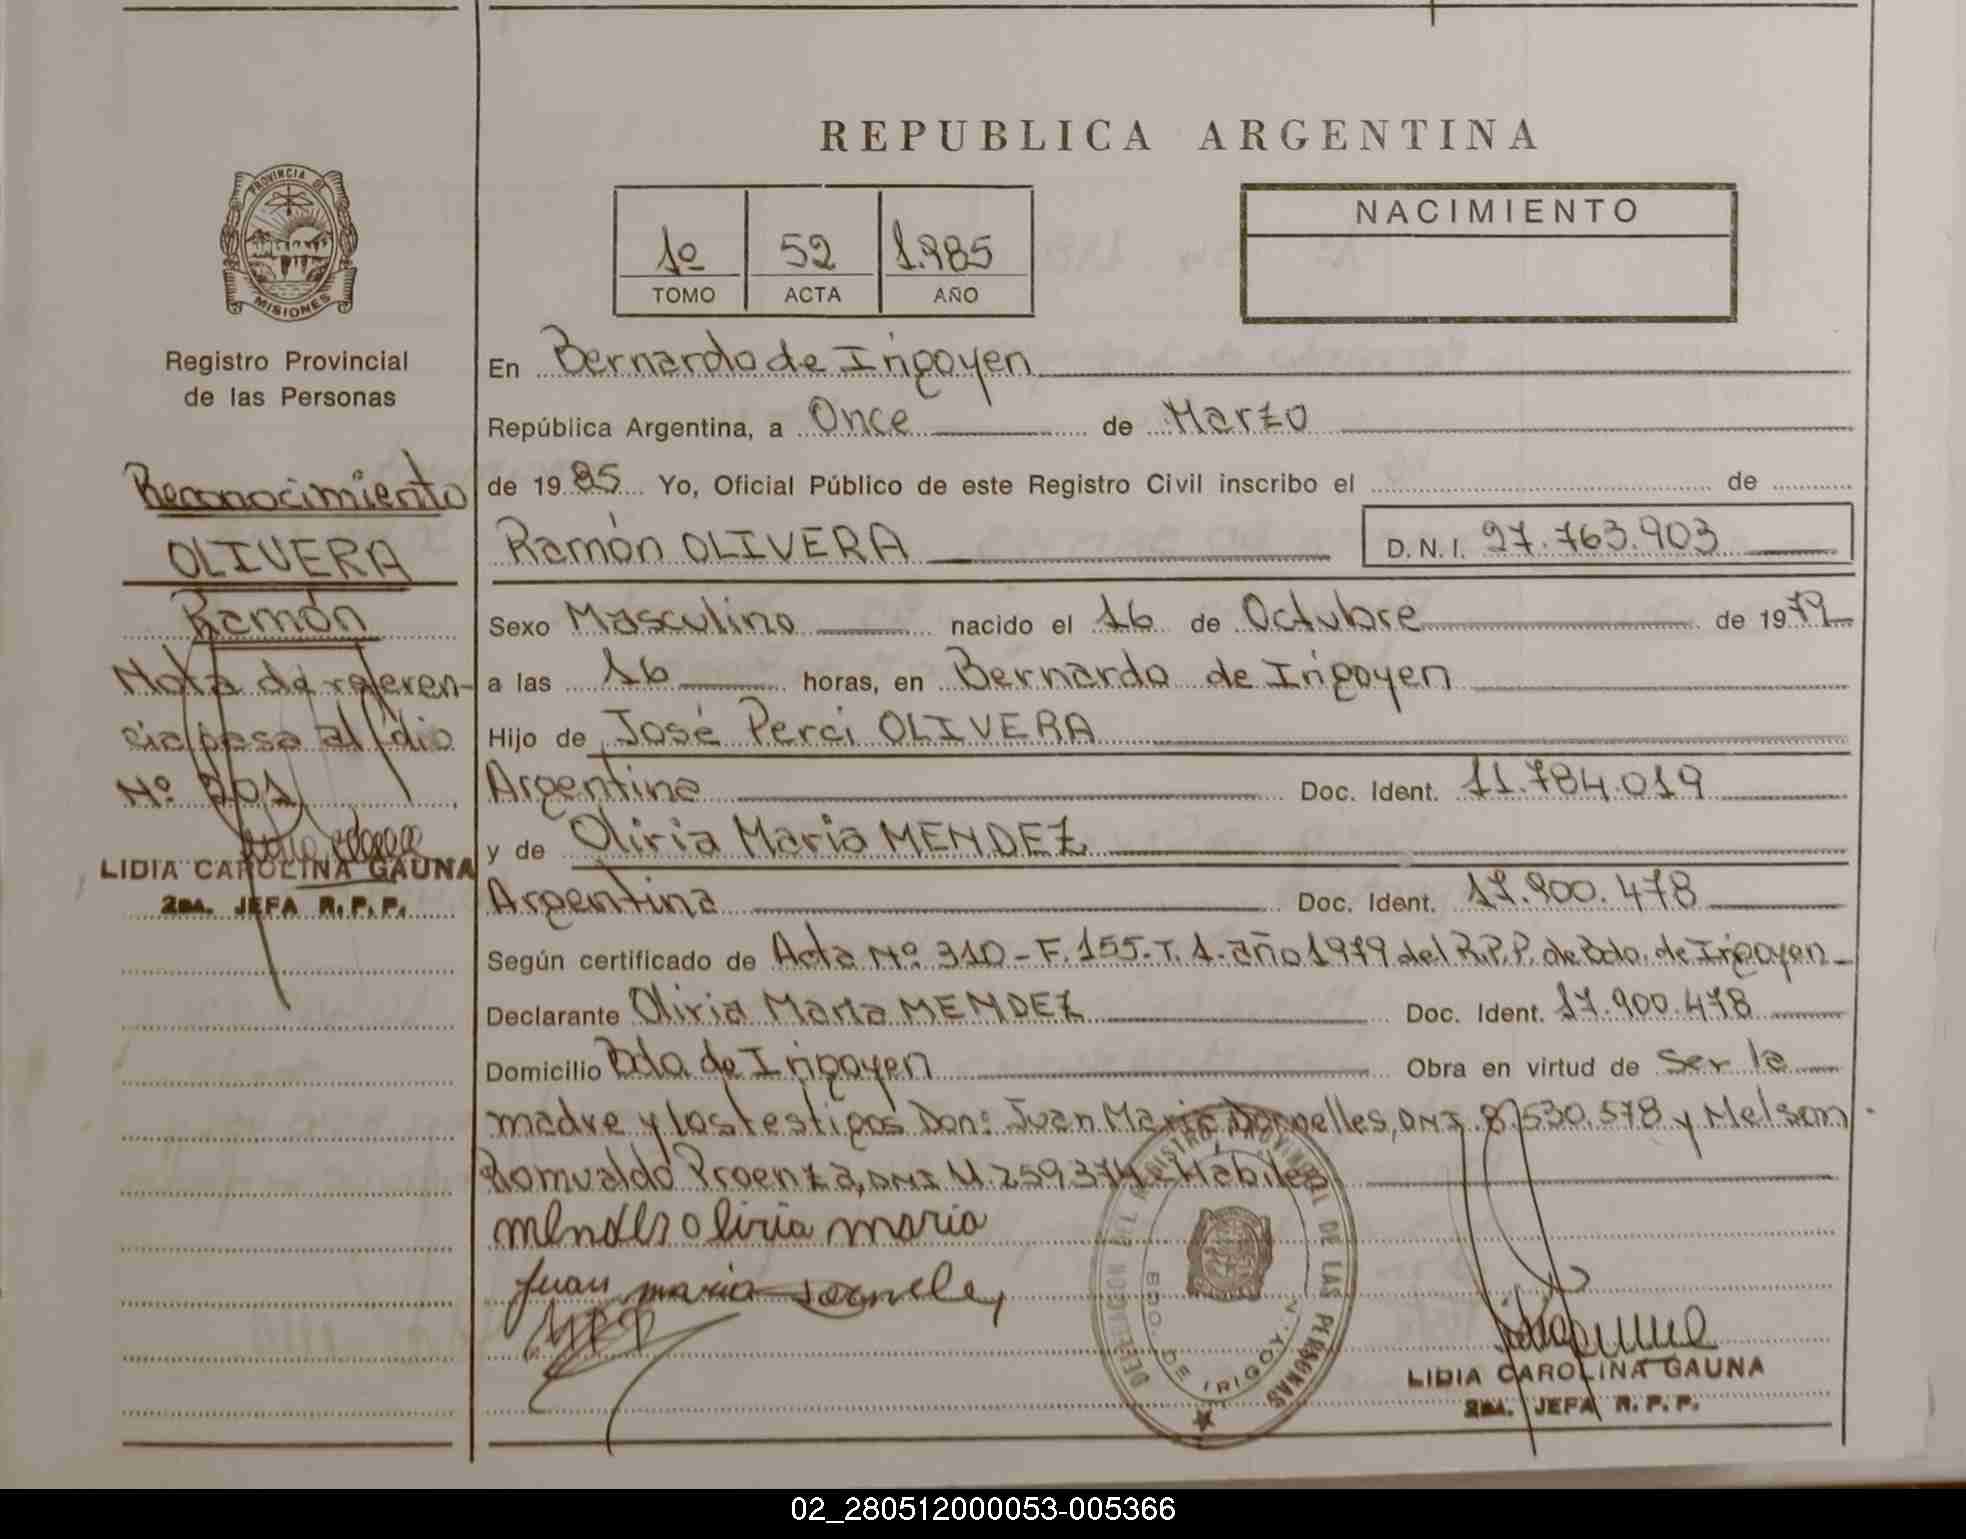 REPUBLICA ARGENTINA
PROVINCIA DE
MISIONES
Registro Provincial
de las Personas
Reconocimiento
OLIVERA
Ramón
Nota de referen-
cia pasa al fdio
Nº 201
LIDIA CAROLINA GAUNA
2DA. JEFA R.P.P.
1º 52 1.985
TOMO ACTA AÑO
NACIMIENTO
En Bernardo de Irigoyen
República Argentina, a Once de Marzo
de 1985 Yo, Oficial Público de este Registro Civil inscribo el de
Ramón OLIVERA D.N.I. 27.763.903
Sexo Masculino nacido el 16 de Octubre de 1979
a las 16 horas, en Bernardo de Irigoyen
Hijo de José Perci OLIVERA
Argentina Doc. Ident. 11.784.019
y de Oliria Maria MENDEZ
Argentina Doc. Ident. 17.900.478
Según certificado de Acta Nº 310-F.155-T.1-año 1979 del R.P.P. de Bdo. de Irigoyen
Declarante Oliria Maria MENDEZ Doc. Ident. 17.900.478
Domicilio Bdo. de Irigoyen Obra en virtud de ser la
madre y los testigos Don: Juan Maria Dornelles, DNI. 8.530.578 y Nelson
Romualdo Proenza, DNI M.259374 - Hábiles
mendes oliria maria
Juan maria
DELEGACION DEL REGISTRO PROVINCIAL DE LAS PERSONAS
BDO. DE IRIGOYEN
LIDIA CAROLINA GAUNA
2DA. JEFA R.P.P.
02_280512000053-005366